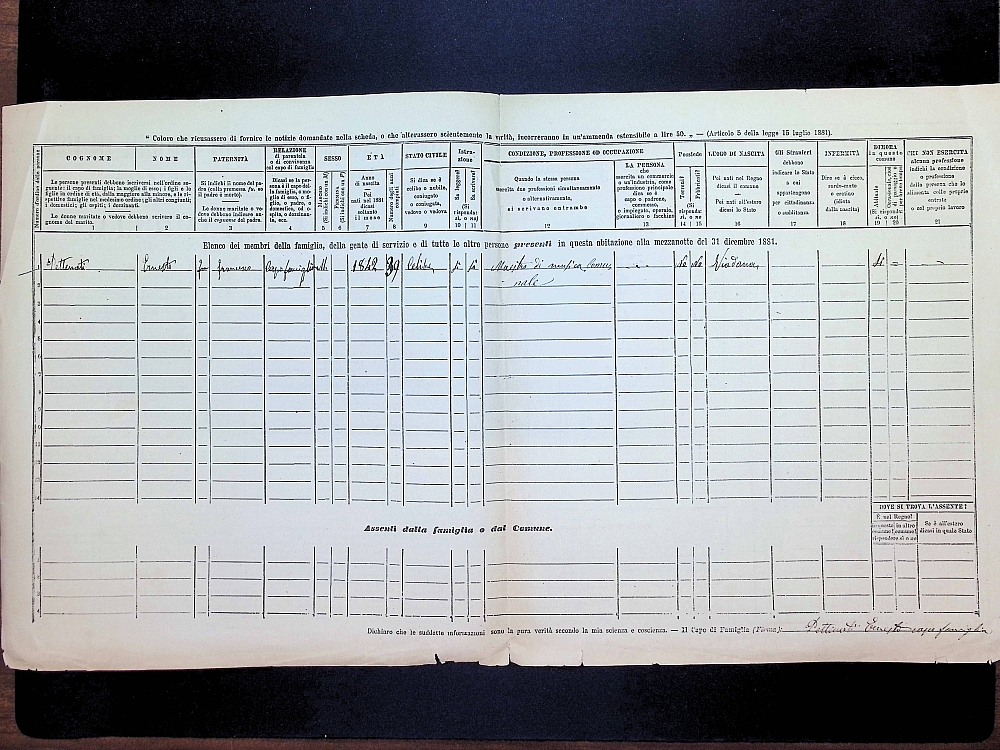 " Coloro che ricusassero di fornire le notizie domandate nella scheda, o che alterassero scientemente la verità, incorreranno in un'ammenda estensibile a lire 50. „ — (Articolo 5 della legge 15 luglio 1881).
COGNOME
Le persone presenti debbono iscriversi nell'ordine seguente: il capo di famiglia; la moglie di esso; i figli e le figlie in ordine di età, dalla maggiore alla minore, e le rispettive famiglie nel medesimo ordine; gli altri congiunti; i domestici; gli ospiti; i dozzinanti.
Le donne maritate o vedove debbono scrivere il cognome del marito.
NOME
PATERNITÀ
Si indichi il nome del padre (colla premessa fu, se il padre è morto).
Le donne maritate o vedove debbono indicare anche il cognome del padre.
RELAZIONE
di parentela
o di convivenza
col capo di famiglia
SESSO
Maschile
(Si indichi con un M)
Femminile
(Si indichi con un F)
ETÀ
Anno
di nascita
Pei
nati nel 1881
dicasi
soltanto
il mese
Numero degli anni
compiuti
STATO CIVILE
Si dica se è
celibe o nubile,
coniugato
o coniugata,
vedovo o vedova
Istruzione
Sa leggere?
Sa scrivere?
(Si risponda:
sì o no)
CONDIZIONE, PROFESSIONE OD OCCUPAZIONE
Quando la stessa persona
esercita due professioni simultaneamente
o alternativamente,
si scrivano entrambe
LA PERSONA
che
esercita un commercio
o un'industria, come
professione principale
dica se è
capo o padrone,
commesso,
o impiegato, operaio,
giornaliero o facchino
Possiede
Terreni?
Fabbricati?
(Si
risponda:
sì o no)
LUOGO DI NASCITA
Pei nati nel Regno
dicasi il comune
Pei nati all'estero
dicasi lo Stato
Gli Stranieri
debbono
indicare lo Stato
a cui
appartengono
per cittadinanza
o sudditanza
INFERMITÀ
Dire se è cieco,
sordo-muto
o cretino
(idiota
dalla nascita)
DIMORA
in questo
comune
Abituale
CHI NON ESERCITA
alcuna professione
indichi la condizione
o professione
della persona che lo
alimenta colle proprie
entrate
o col proprio lavoro
1 2 3 4 5 6 7 8 9 10 11 12 13 14 15 16 17 18 19 20 21
Elenco dei membri della famiglia, della gente di servizio e di tutte le altre persone presenti in questa abitazione alla mezzanotte del 31 dicembre 1881.
Ernesto fu Francesco Capo famiglia M. 1842 39 Celibe sì sì Maestro di musica Comu
nale
No No Si
DOVE SI TROVA L'ASSENTE?
È nel Regno?
Se è all'estero
dicasi in quale Stato
Assenti dalla famiglia o dal Comune.
Dichiaro che le suddette informazioni sono la pura verità secondo la mia scienza e coscienza. — Il Capo di Famiglia (Firma): Ernesto capo famiglia